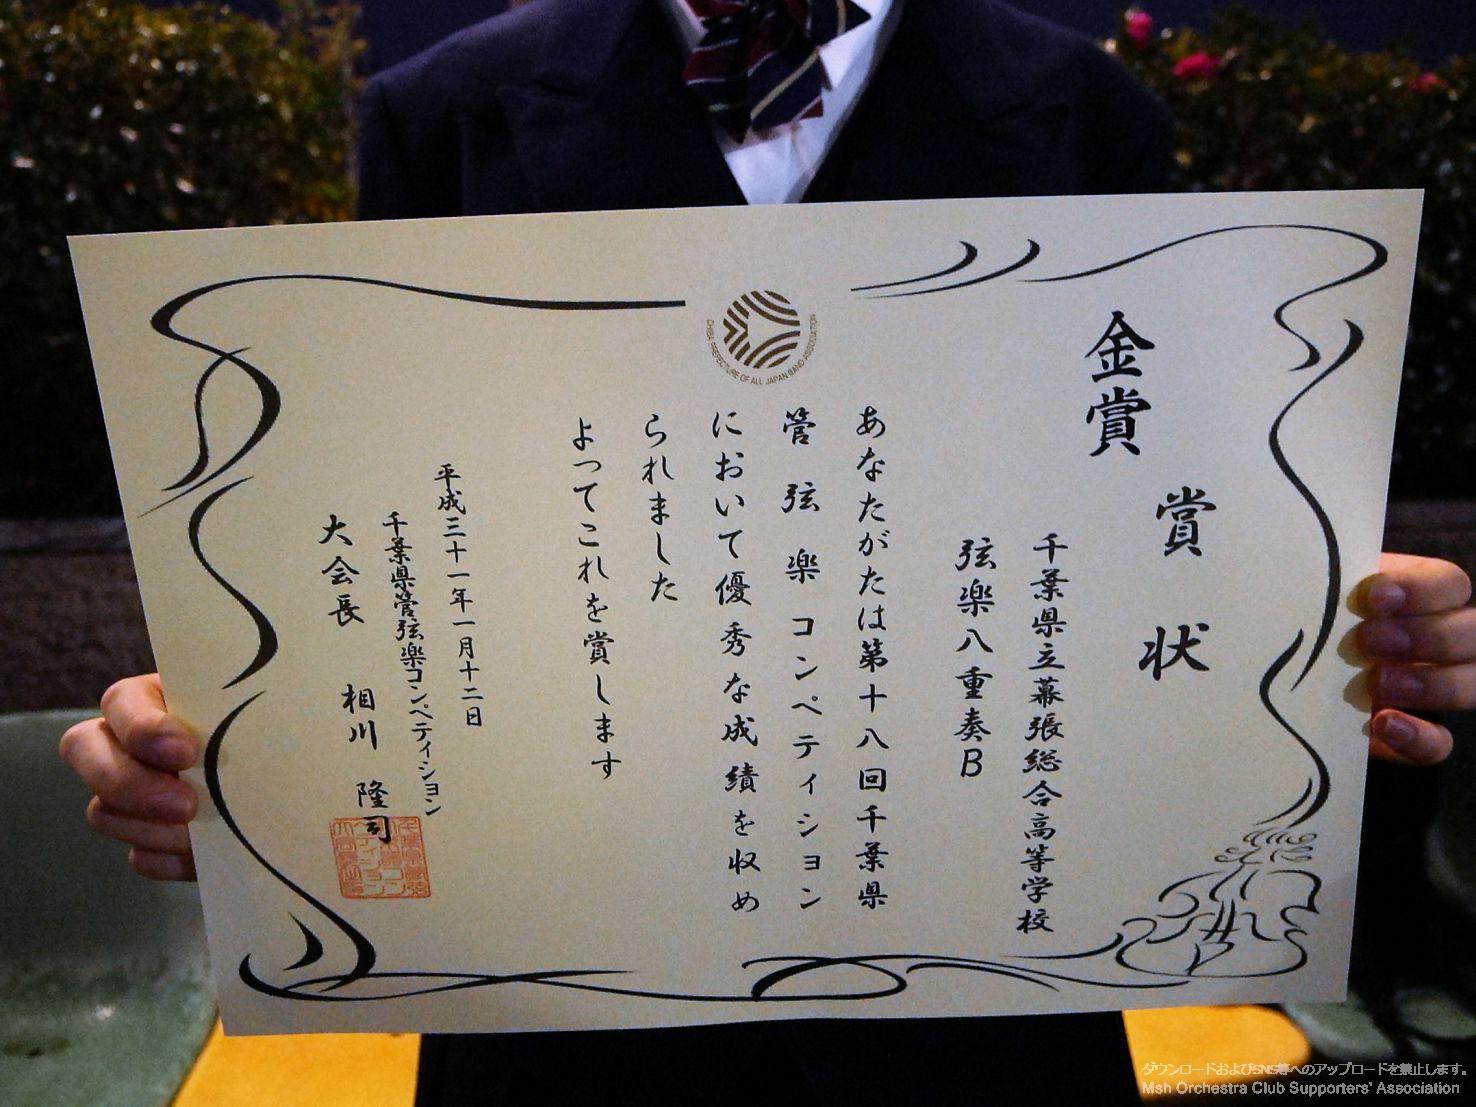 CHIBA PREFECTURE OF ALL JAPAN BAND ASSOCIATION
賞状
金賞
千葉県立幕張総合高等学校
弦楽八重奏B
あなたがたは第十八回千葉県
管弦楽コンペティション
において優秀な成績を収め
られました
よってこれを賞します
平成三十一年一月十二日
千葉県管弦楽コンペティション
大会長 相川 隆司
ダウンロードおよびSNS等へのアップロードを禁止します。
Msh Orchestra Club Supporters' Association